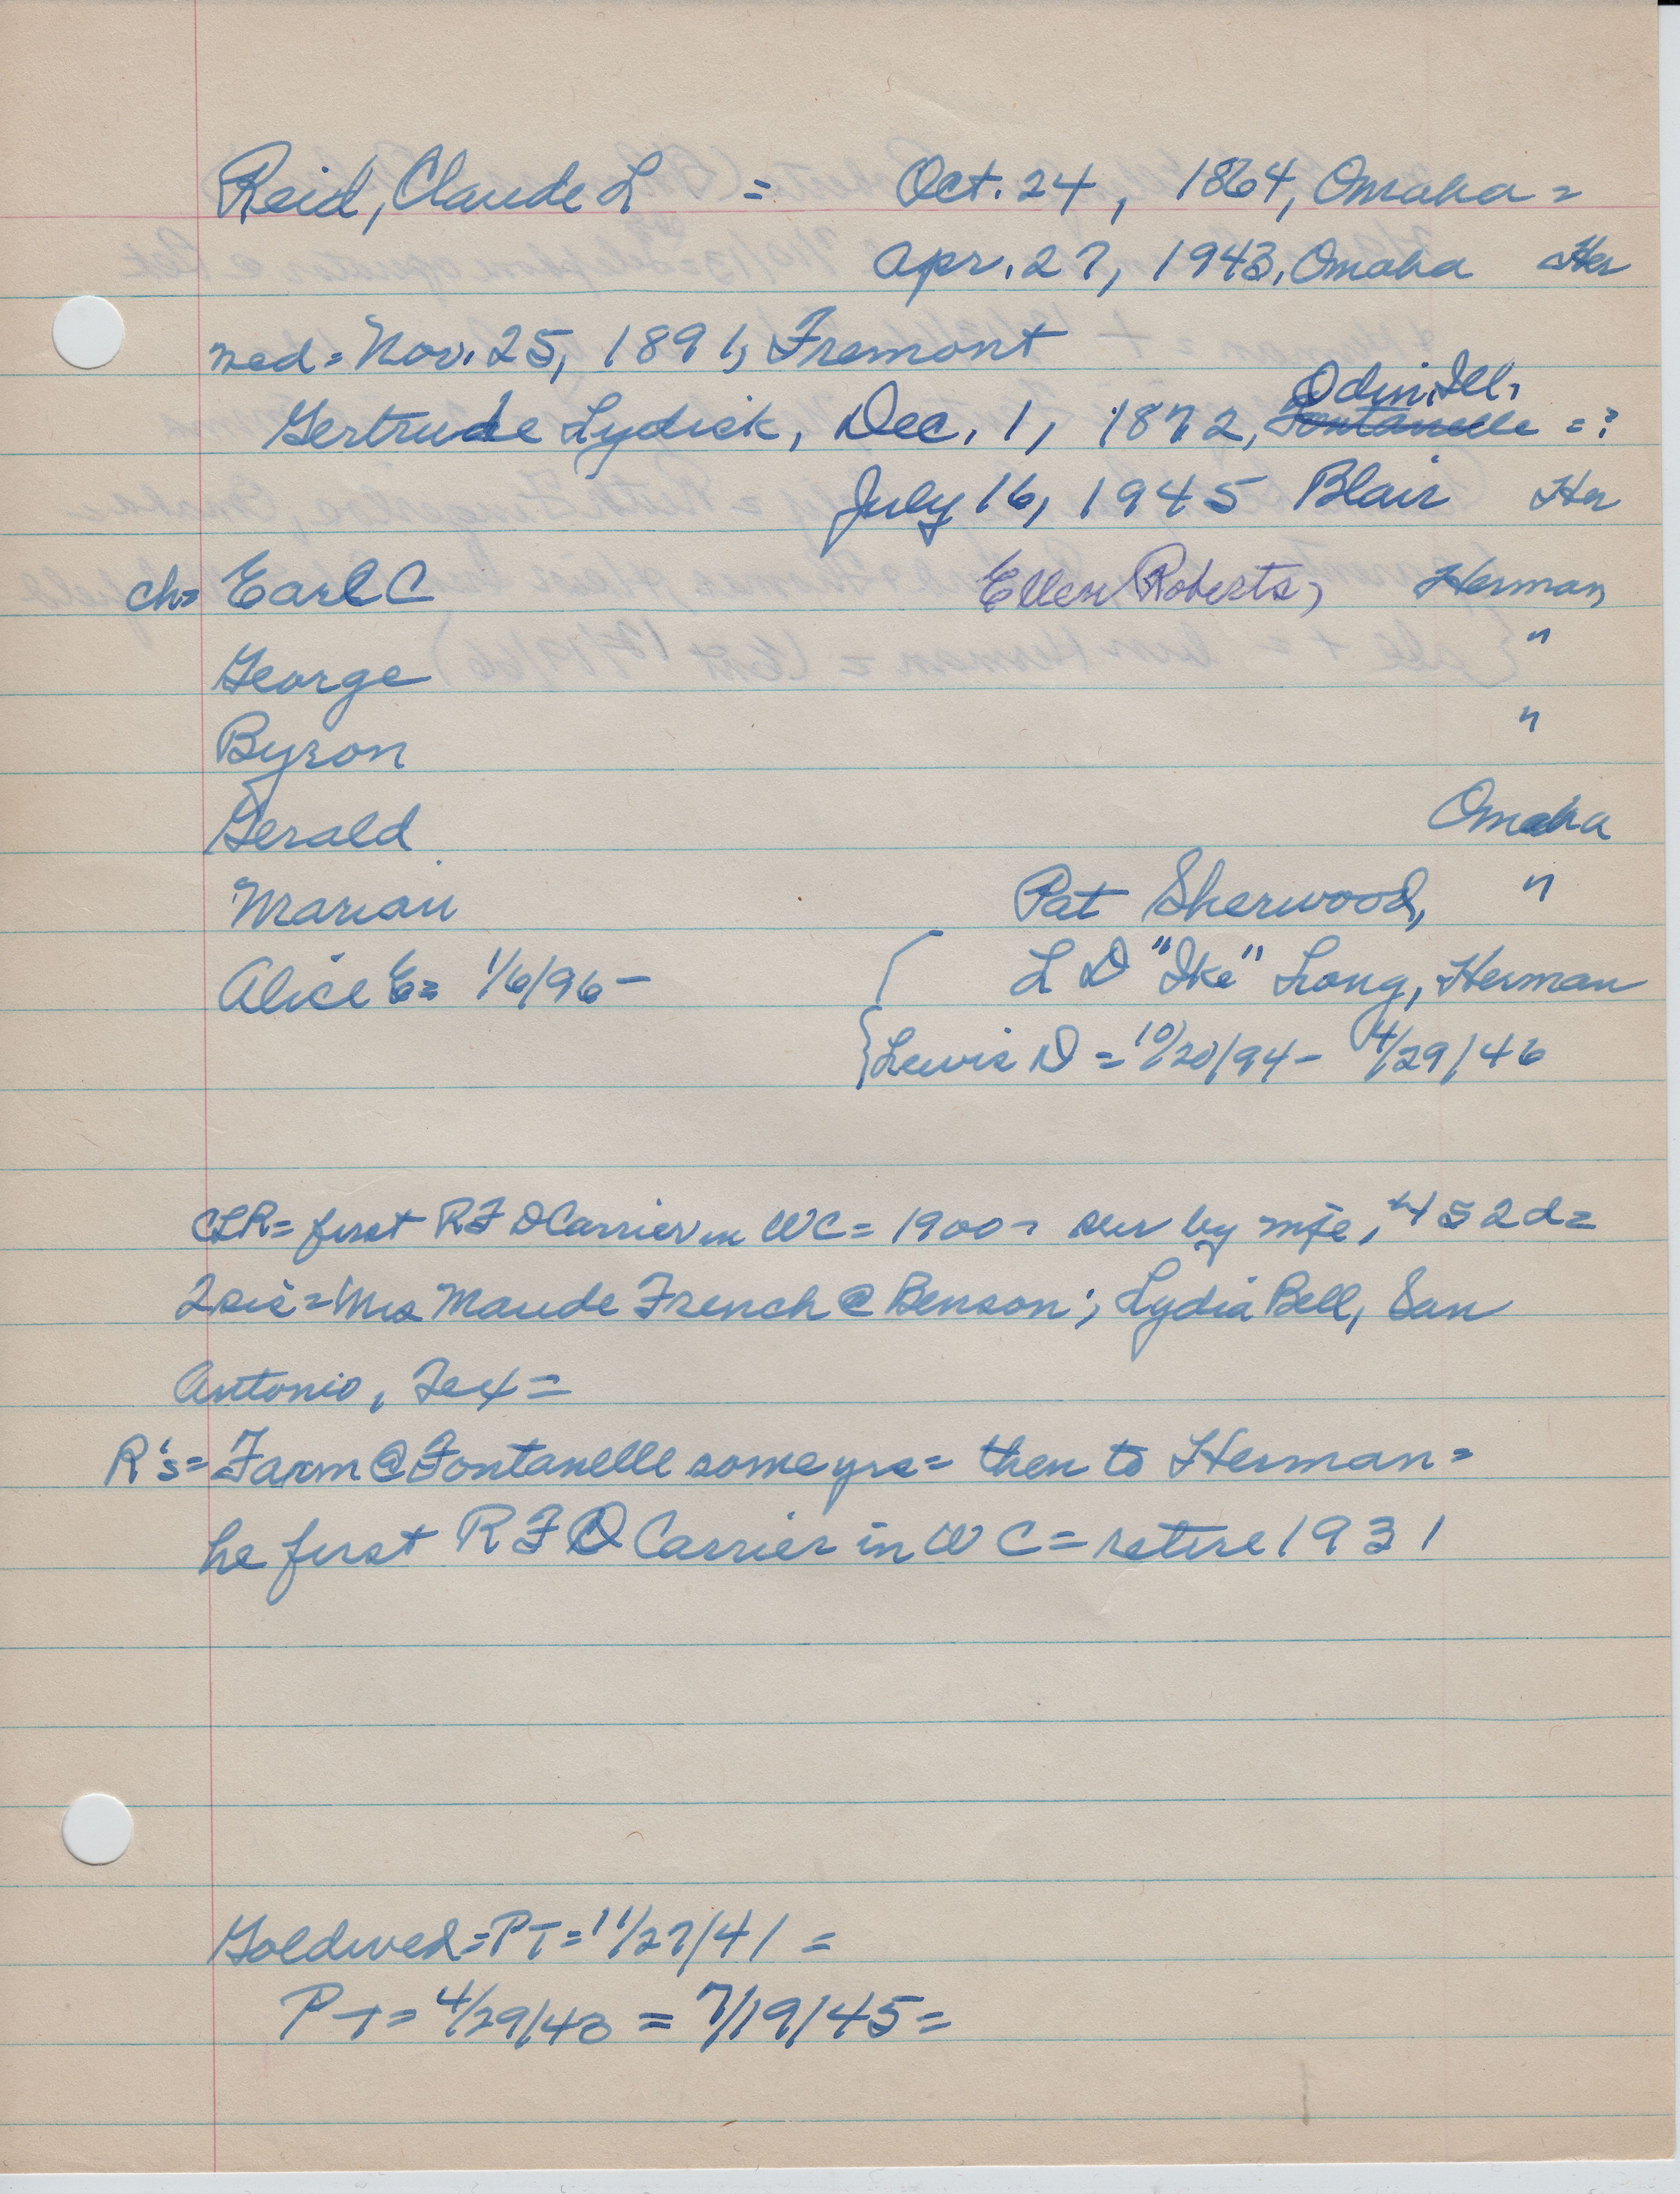 Reid, Claude L = Oct. 24, 1864, Omaha =
Apr. 27, 1943, Omaha Her
wed = Nov. 25, 1891, Fremont
Odin, Ill,
Gertrude Lydick, Dec. 1, 1872, Fontanelle = ?
July 16, 1945 Blair Her
ch = Earl C Ellen Roberts, Herman
George "
Byron "
Gerald Omaha
Marian Pat Sherwood, "
Alice E = 1/6/96 - L D "Ike" Long, Herman
{Lewis D = 10/20/94 - 4/29/46
CLR = first RFD Carrier in WC = 1900 - sur by wife, 4 s 2 d =
2 sis = Mrs Maude French @ Benson; Lydia Bell, San
Antonio, Tex =
R's = Farm @ Fontanelle some yrs = then to Herman =
he first RFD Carrier in WC = retire 1931
Goldwed = PT = 11/27/41 =
PT = 4/29/43 = 7/19/45 =